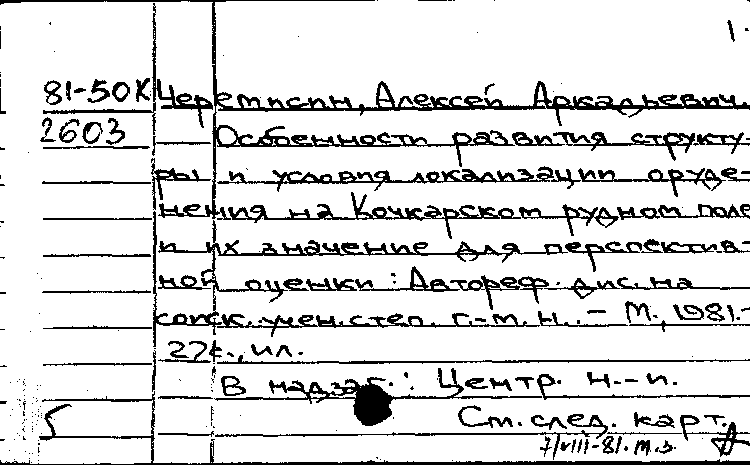 1.
81-50К Черемисин, Алексей Аркадьевич.
2603 Особенности развития структу-
ры и условия локализации оруде-
нения на Кочкарском рудном поле
и их значение для перспектив-
ной оценки : Автореф. дис. на
соиск. учен. степ. г.-м. н. – М., 1981.-
27с., ил.
В надзаг.: Центр. н.-и.
5 См. след. карт.
7/viii-81. м.з.